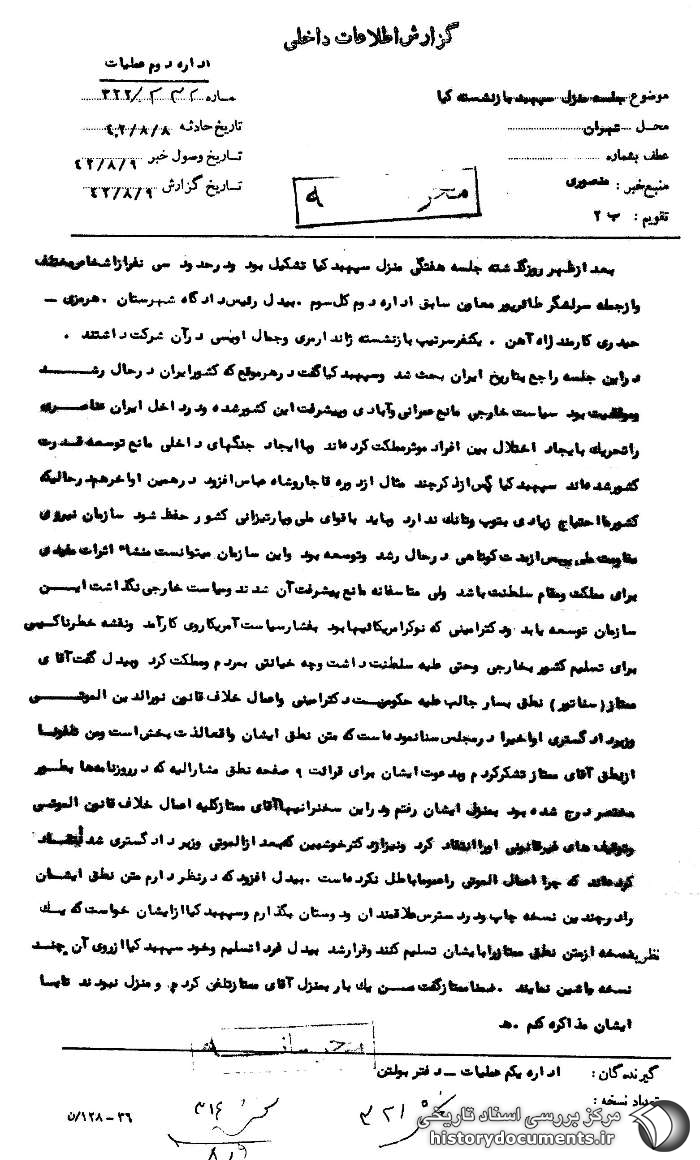 گزارش اطلاعات داخلی
اداره دوم عملیات
موضوع جلسه منزل سپهبد بازنشسته کیا
شماره ۳۲۲/
محل تهران
تاریخ حادثه ۴۲/۸/۸
عطف بشماره
تاریخ وصول خبر ۴۲/۸/۹
منبع خبر : منصوری
تاریخ گزارش ۴۲/۸/۹
تقویم : ب ۲
بعد از ظهر روز گذشته جلسه هفتگی منزل سپهبد کیا تشکیل بود و در حدود سی نفر از اشخاص مختلف
و از جمله سرلشگر طاقرپور معاون سابق اداره دوم کل سوم . بیدل رئیس دادگاه شهرستان . هرمزی -
حیدری کارمند راه آهن . یکنفر سرتیپ بازنشسته ژاندارمری و جمال اویسی در آن شرکت داشتند .
در این جلسه راجع بتاریخ ایران بحث شد و سپهبد کیا گفت در هر موقع که کشور ایران در حال رشد
و موفقیت بود سیاست خارجی مانع عمرانی و آبادی و پیشرفت این کشور شده و در داخل ایران عناصری
را تحریک با ایجاد اختلال بین افراد موثر مملکت کرده‌اند و با ایجاد جنگهای داخلی مانع توسعه قدرت
کشور شده‌اند سپهبد کیا پس از ذکر چند مثال از دوره قاجار و شاه عباس افزود در همین اواخر هم در حالیکه
کشور ما احتیاج زیادی بتوپ و تانک ندارد و باید با قوای ملی و پارتیزانی کشور حفظ شود سازمان نیروی
مقاومت ملی پس از مدت کوتاهی در حال رشد و توسعه بود و این سازمان میتوانست منشاء اثرات مفیدی
برای مملکت و مقام سلطنت باشد ولی متاسفانه مانع پیشرفت آن شدند و سیاست خارجی نگذاشت این
سازمان توسعه یابد و دکتر امینی که نوکر امریکائیها بود بفشار سیاست آمریکا روی کار آمد و نقشه خطرناکی
برای تسلیم کشور بخارجی وحتی علیه سلطنت داشت و چه خیانتی بمردم و مملکت کرد و بیدل گفت آقای
ممتاز ( سناتور ) نطق بسار جالب علیه حکومت دکتر امینی و اعمال خلاف قانون نورالدین الموتی
وزیر دادگستری او اخیرا در مجلس سنا نموده‌است که متن نطق ایشان واقعا لذت بخش است و من تلفونا
از نطق آقای ممتاز تشکر کردم و بدعوت ایشان برای قرائت ۹ صفحه نطق مشارالیه که در روزنامه‌ها بطور
مختصر درج شده بود بمنزل ایشان رفتم و در این سخنرانیها آقای ممتاز کلیه اعمال خلاف قانون الموتی
و توقیف های غیرقانونی او را انتقاد کرد و نیز از دکتر خوشبین که بعد از الموتی وزیر دادگستری شد انتقاد
کرده‌اند که چرا اعمال الموتی را عموما باطل نکرده‌است . بیدل افزود که در نظر دارم متن نطق ایشان
را در چندین نسخه چاپ و در دسترس علاقمندان و دوستان بگذارم و سپهبد کیا از ایشان خواست که یک
نظریه نسخه از متن نطق ممتاز را بایشان تسلیم کنند و قرار شد بیدل فردا تسلیم و خود سپهبد کیا از روی آن چند
نسخه ماشین نمایند . ضمنا ممتاز گفت من یک بار بمنزل آقای ممتاز تلفن کردم و منزل نبودند تا با
ایشان مذاکره کنم . هـ
محرمانه
گیرندگان : اداره یکم عملیات - دفتر بولتن
تعداد نسخه :
۳۲۱
۳۱۴
۳۶ - ۱۲۸/ن
مرکز بررسی اسناد تاریخی
historydocuments.ir